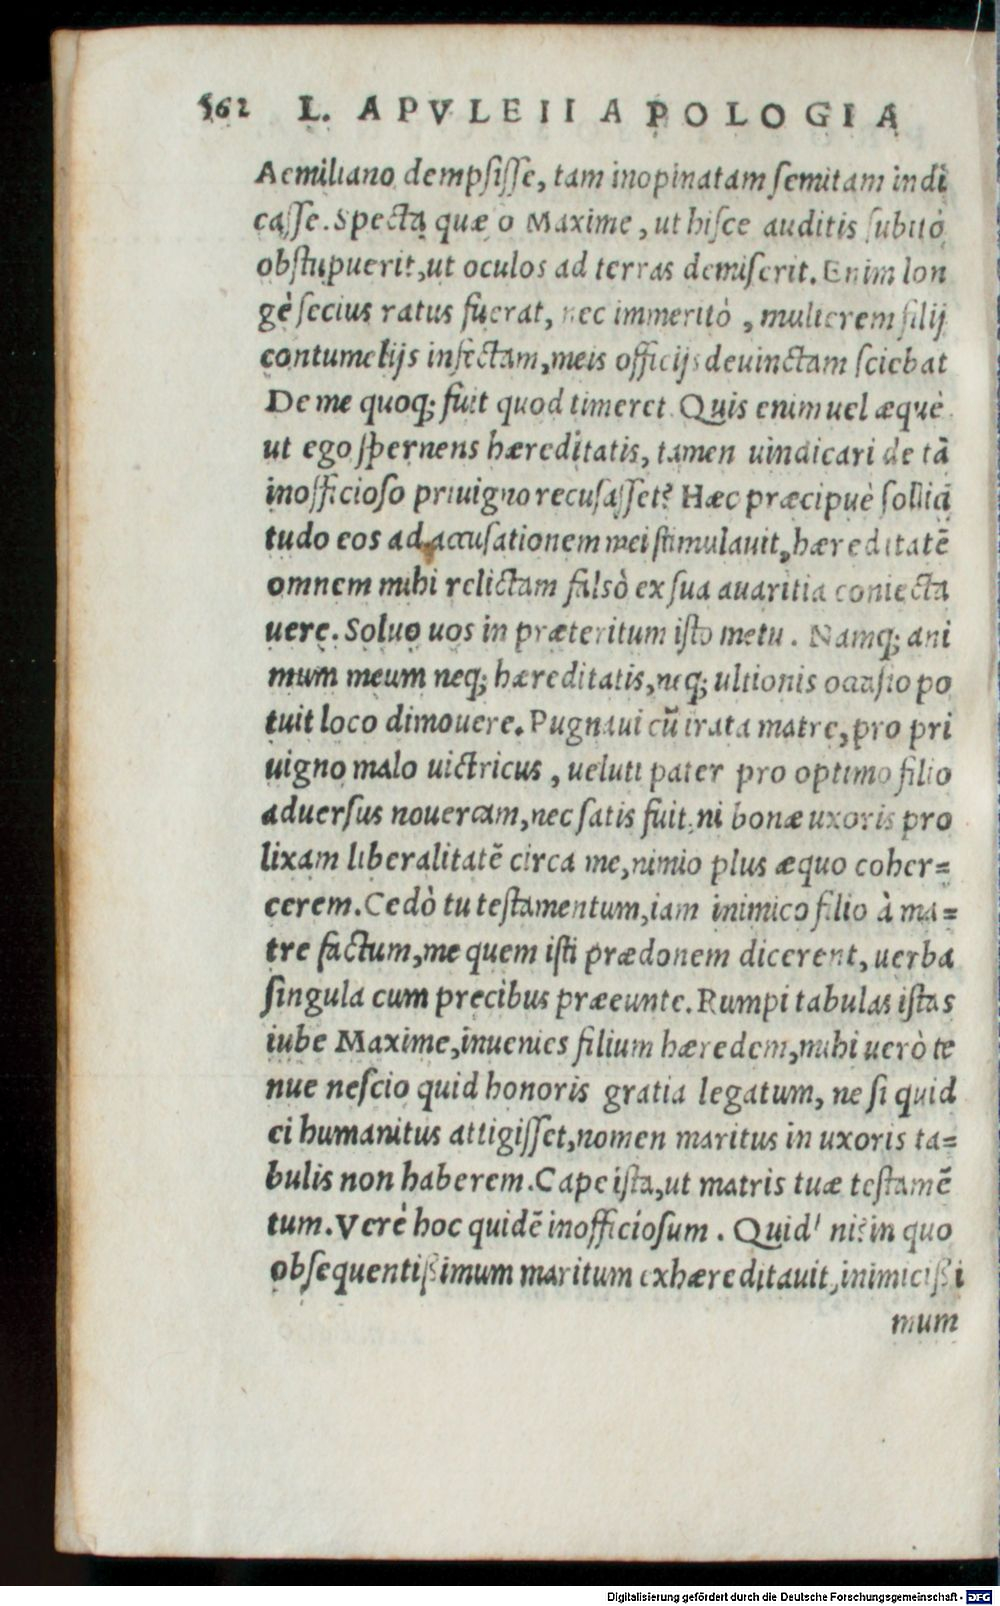 562 L. APVLEII APOLOGIA
Aemiliano dempsisse, tam inopinatam semitam indi
casse. Specta quæ o Maxime, ut hisce auditis subitò
obstupuerit, ut oculos ad terras demiserit. Enim lon
gè secius ratus fuerat, nec immeritò, mulierem filij
contumelijs infectam, meis officijs deuinctam sciebat
De me quoq; fuit quod timeret. Quis enim uel æquè
ut ego spernens hæreditatis, tamen uindicari de tā
inofficioso priuigno recusasset? Hæc præcipuè sollici
tudo eos ad accusationem mei stimulauit, hæreditatē
omnem mihi relictam falsò ex sua auaritia coniecta
uere. Soluo uos in præteritum isto metu. Namq; ani
mum meum neq; hæreditatis, neq; ultionis occasio po
tuit loco dimouere. Pugnaui cū irata matre, pro pri
uigno malo uictricus, ueluti pater pro optimo filio
aduersus nouercam, nec satis fuit, ni bonæ uxoris pro
lixam liberalitatē circa me, nimio plus æquo coher=
cerem. Cedò tu testamentum, iam inimico filio à ma=
tre factum, me quem isti prædonem dicerent, uerba
singula cum precibus præeunte. Rumpi tabulas istas
iube Maxime, inuenies filium hæredem, mihi uerò te
nue nescio quid honoris gratia legatum, ne si quid
ei humanitus attigisset, nomen maritus in uxoris ta=
bulis non haberem. Cape ista, ut matris tuæ testamē
tum. Verè hoc quidē inofficiosum. Quid' ni? in quo
obsequentißimum maritum exhæreditauit, inimicißi
mum
Digitalisierung gefördert durch die Deutsche Forschungsgemeinschaft - DFG